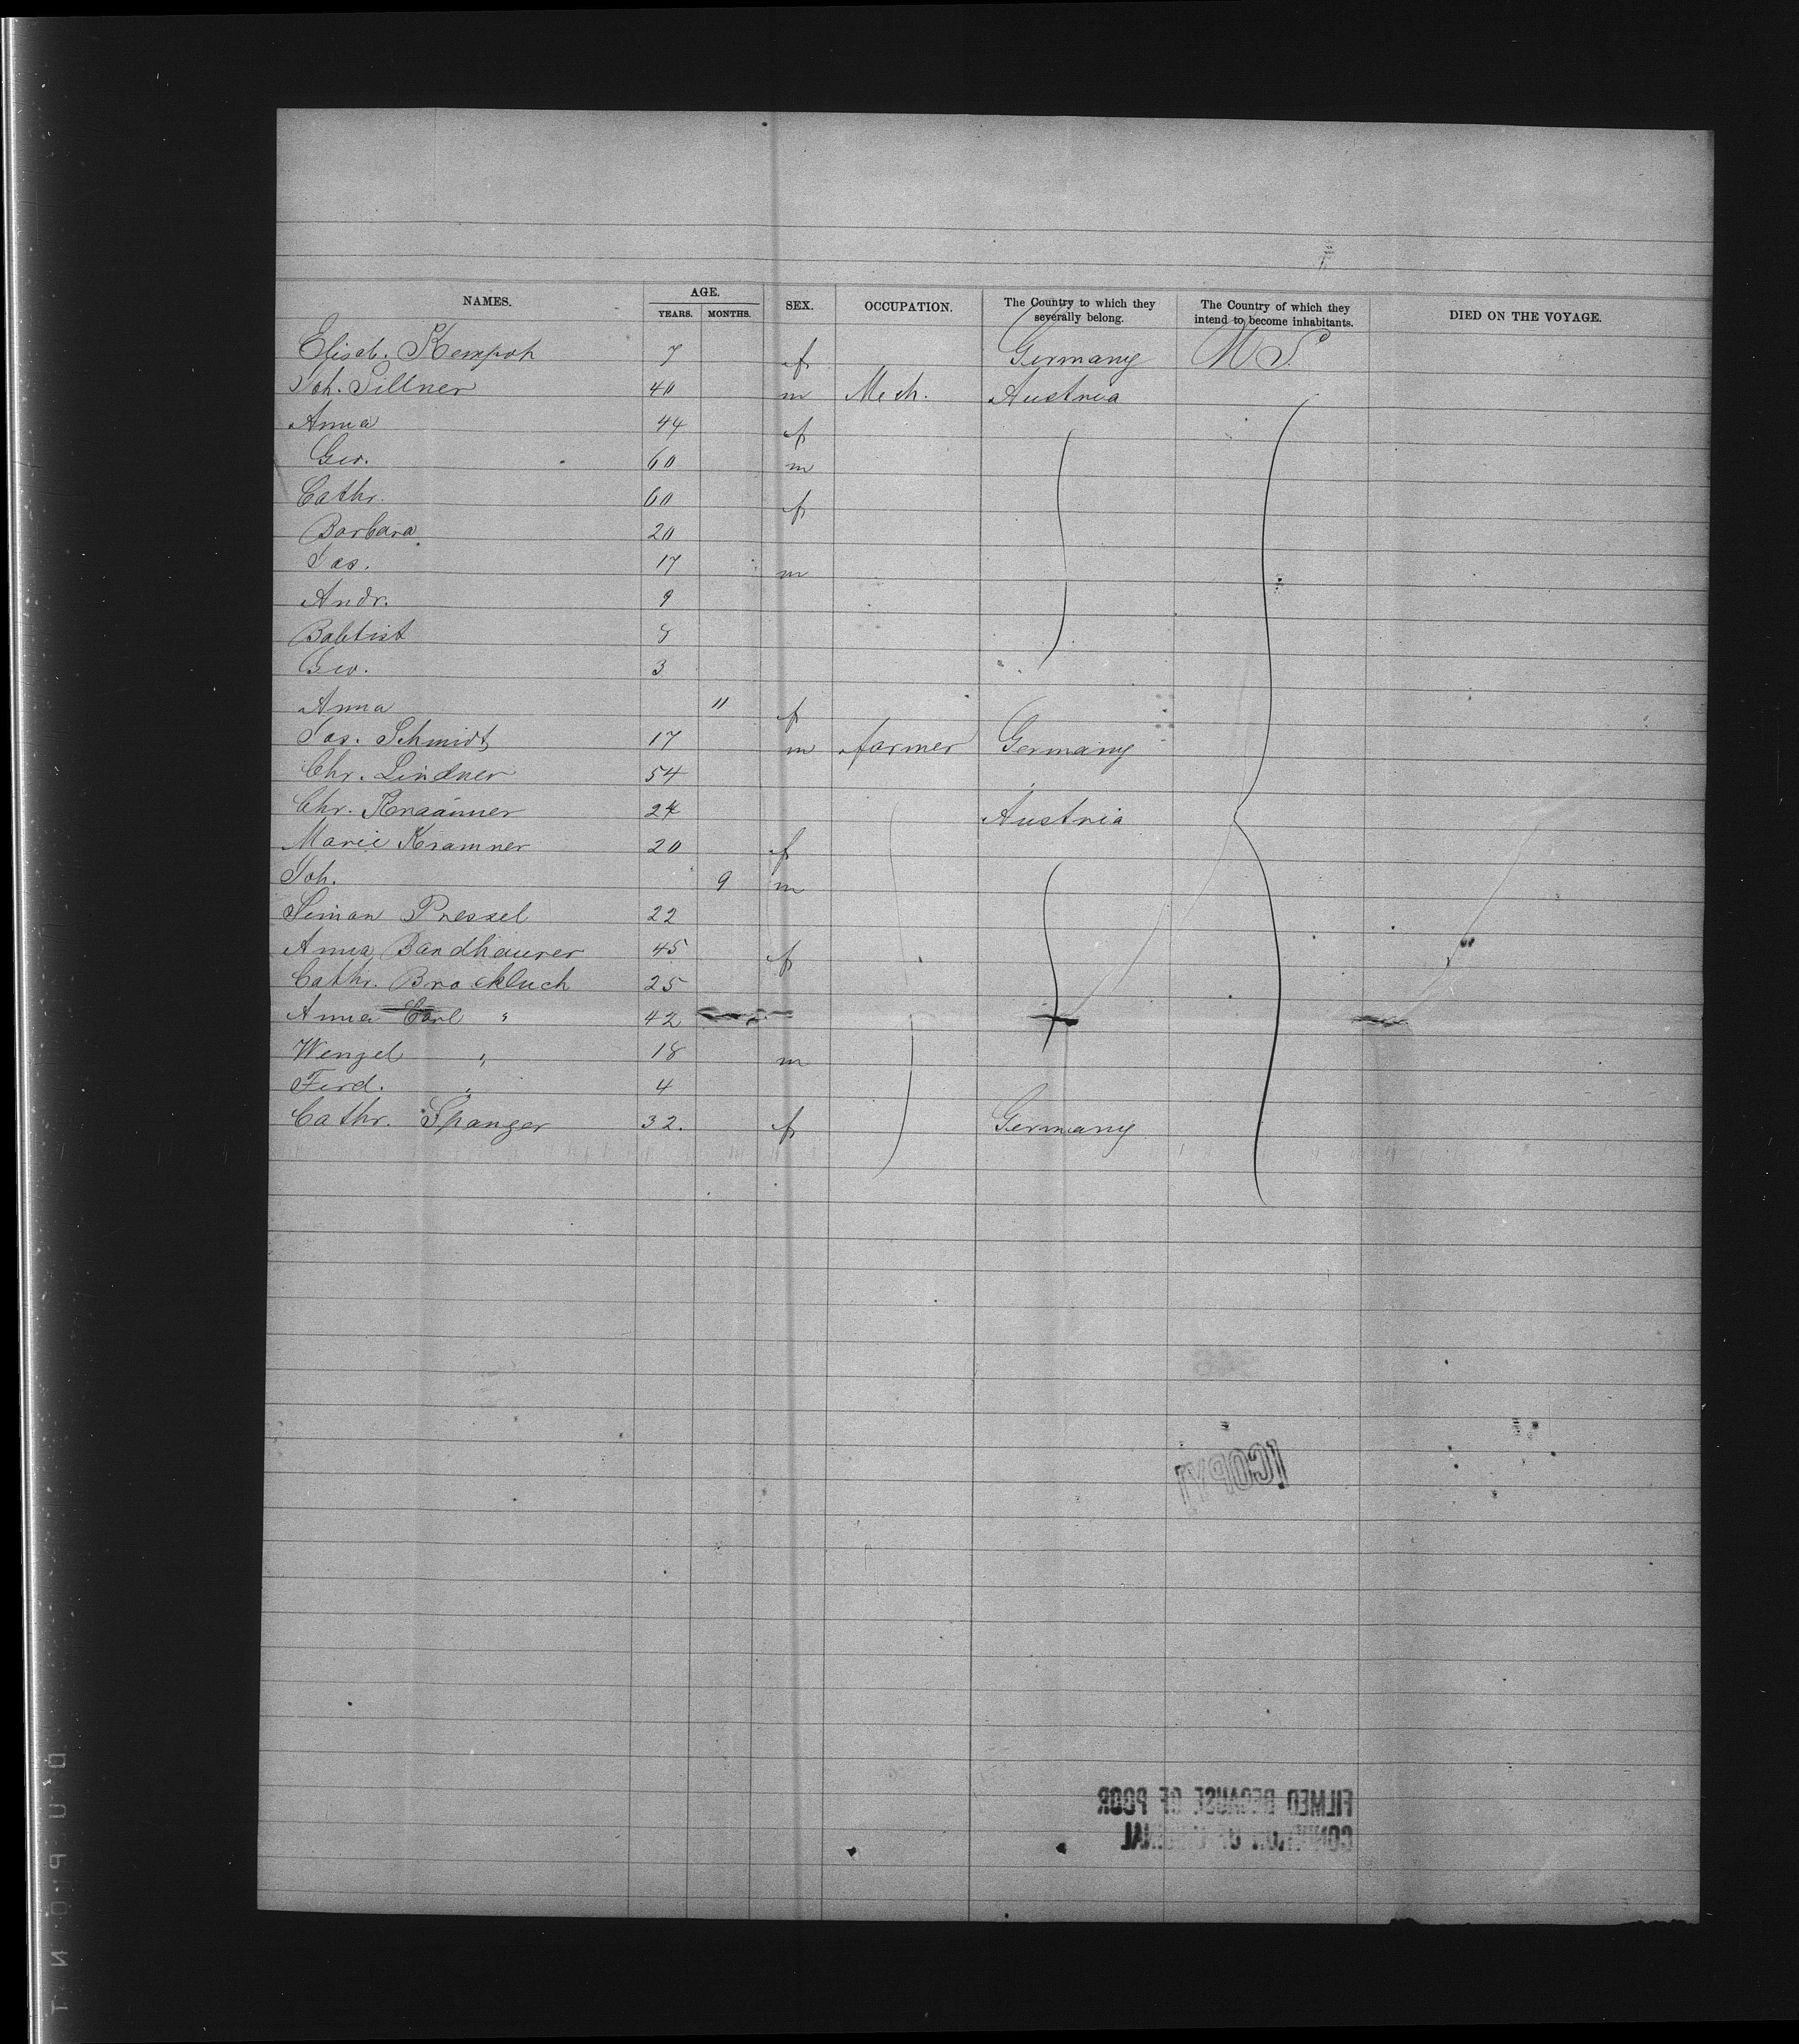 NAMES. AGE. YEARS. MONTHS. SEX. OCCUPATION. The Country to which they severally belong. The Country of which they intend to become inhabitants. DIED ON THE VOYAGE.
Elisab. Kempoh 7 f Germany U S.
Joh. Sillner 40 m Mech. Austria
Anna 44 f
Geo. 60 m
Cathr. 60 f
Barbara 20
Jos. 17 m
Andr. 9
Babtist 8
Geo. 3
Anna 11 f
Jos. Schmidt 17 m farmer Germany
Chr. Lindner 54
Chr. 24 Austria
Marie Kramner 20 f
Joh. 9 m
Simon Pressel 22
Anna Bandhaurer 45 f
Cathr. Brockluch 25
Anna Carl " 42
Wenzel " 18 m
Ferd. " 4
Cathr. Spanger 32. f Germany
[COPY]
FILMED BECAUSE OF POOR
CONDITION OF ORIGINAL